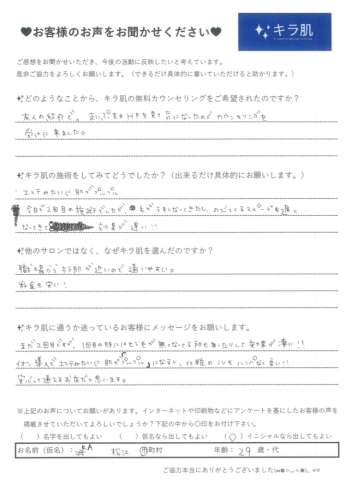 ♥お客様のお声をお聞かせください♥
キラ肌
ご感想をお聞かせいただき、今後の活動に反映したいと考えています。
是非ご協力をよろしくお願いします。（できるだけ具体的に書いていただけると助かります。）
どのようなことから、キラ肌の無料カウンセリングをご希望されたのですか？
友人の紹介で。 HPを見て気になったのでカウンセリングを
受けに来ました。
キラ肌の施術をしてみてどうでしたか？（出来るだけ具体的にお願いします。）
エステみたいに肌がプルプル
今日が2回目の施術でしたが、毛がうすくなってきたし、のびてくるスピードも遅く
なってきて 効果が速い!!
他のサロンではなく、なぜキラ肌を選んだのですか？
職場からキラ肌が近いので通いやすい。
料金も安い!
キラ肌に通うか迷っているお客様にメッセージをお願いします。
まだ2回目ですが、1回目の時にはえてる毛が無くなってる所もあったりして効果が凄い!!
イオン導入でエステみたいに肌がプルプルになるし、化粧のノリもハンパなく良い!!
安心して通えるお店だと思います。
※上記のお声についてお願いがあります。インターネットや印刷物などにアンケートを基にしたお客様の声を
掲載させていただいてよろしいでしょうか？下記の中から〇印をお付け下さい。
（　）名字を出してもよい （　）仮名なら出してもよい （〇）イニシャルなら出してもよい
お名前（仮名）： KA 松江 市町村 年齢：29 歳・代
ご協力本当にありがとうございました